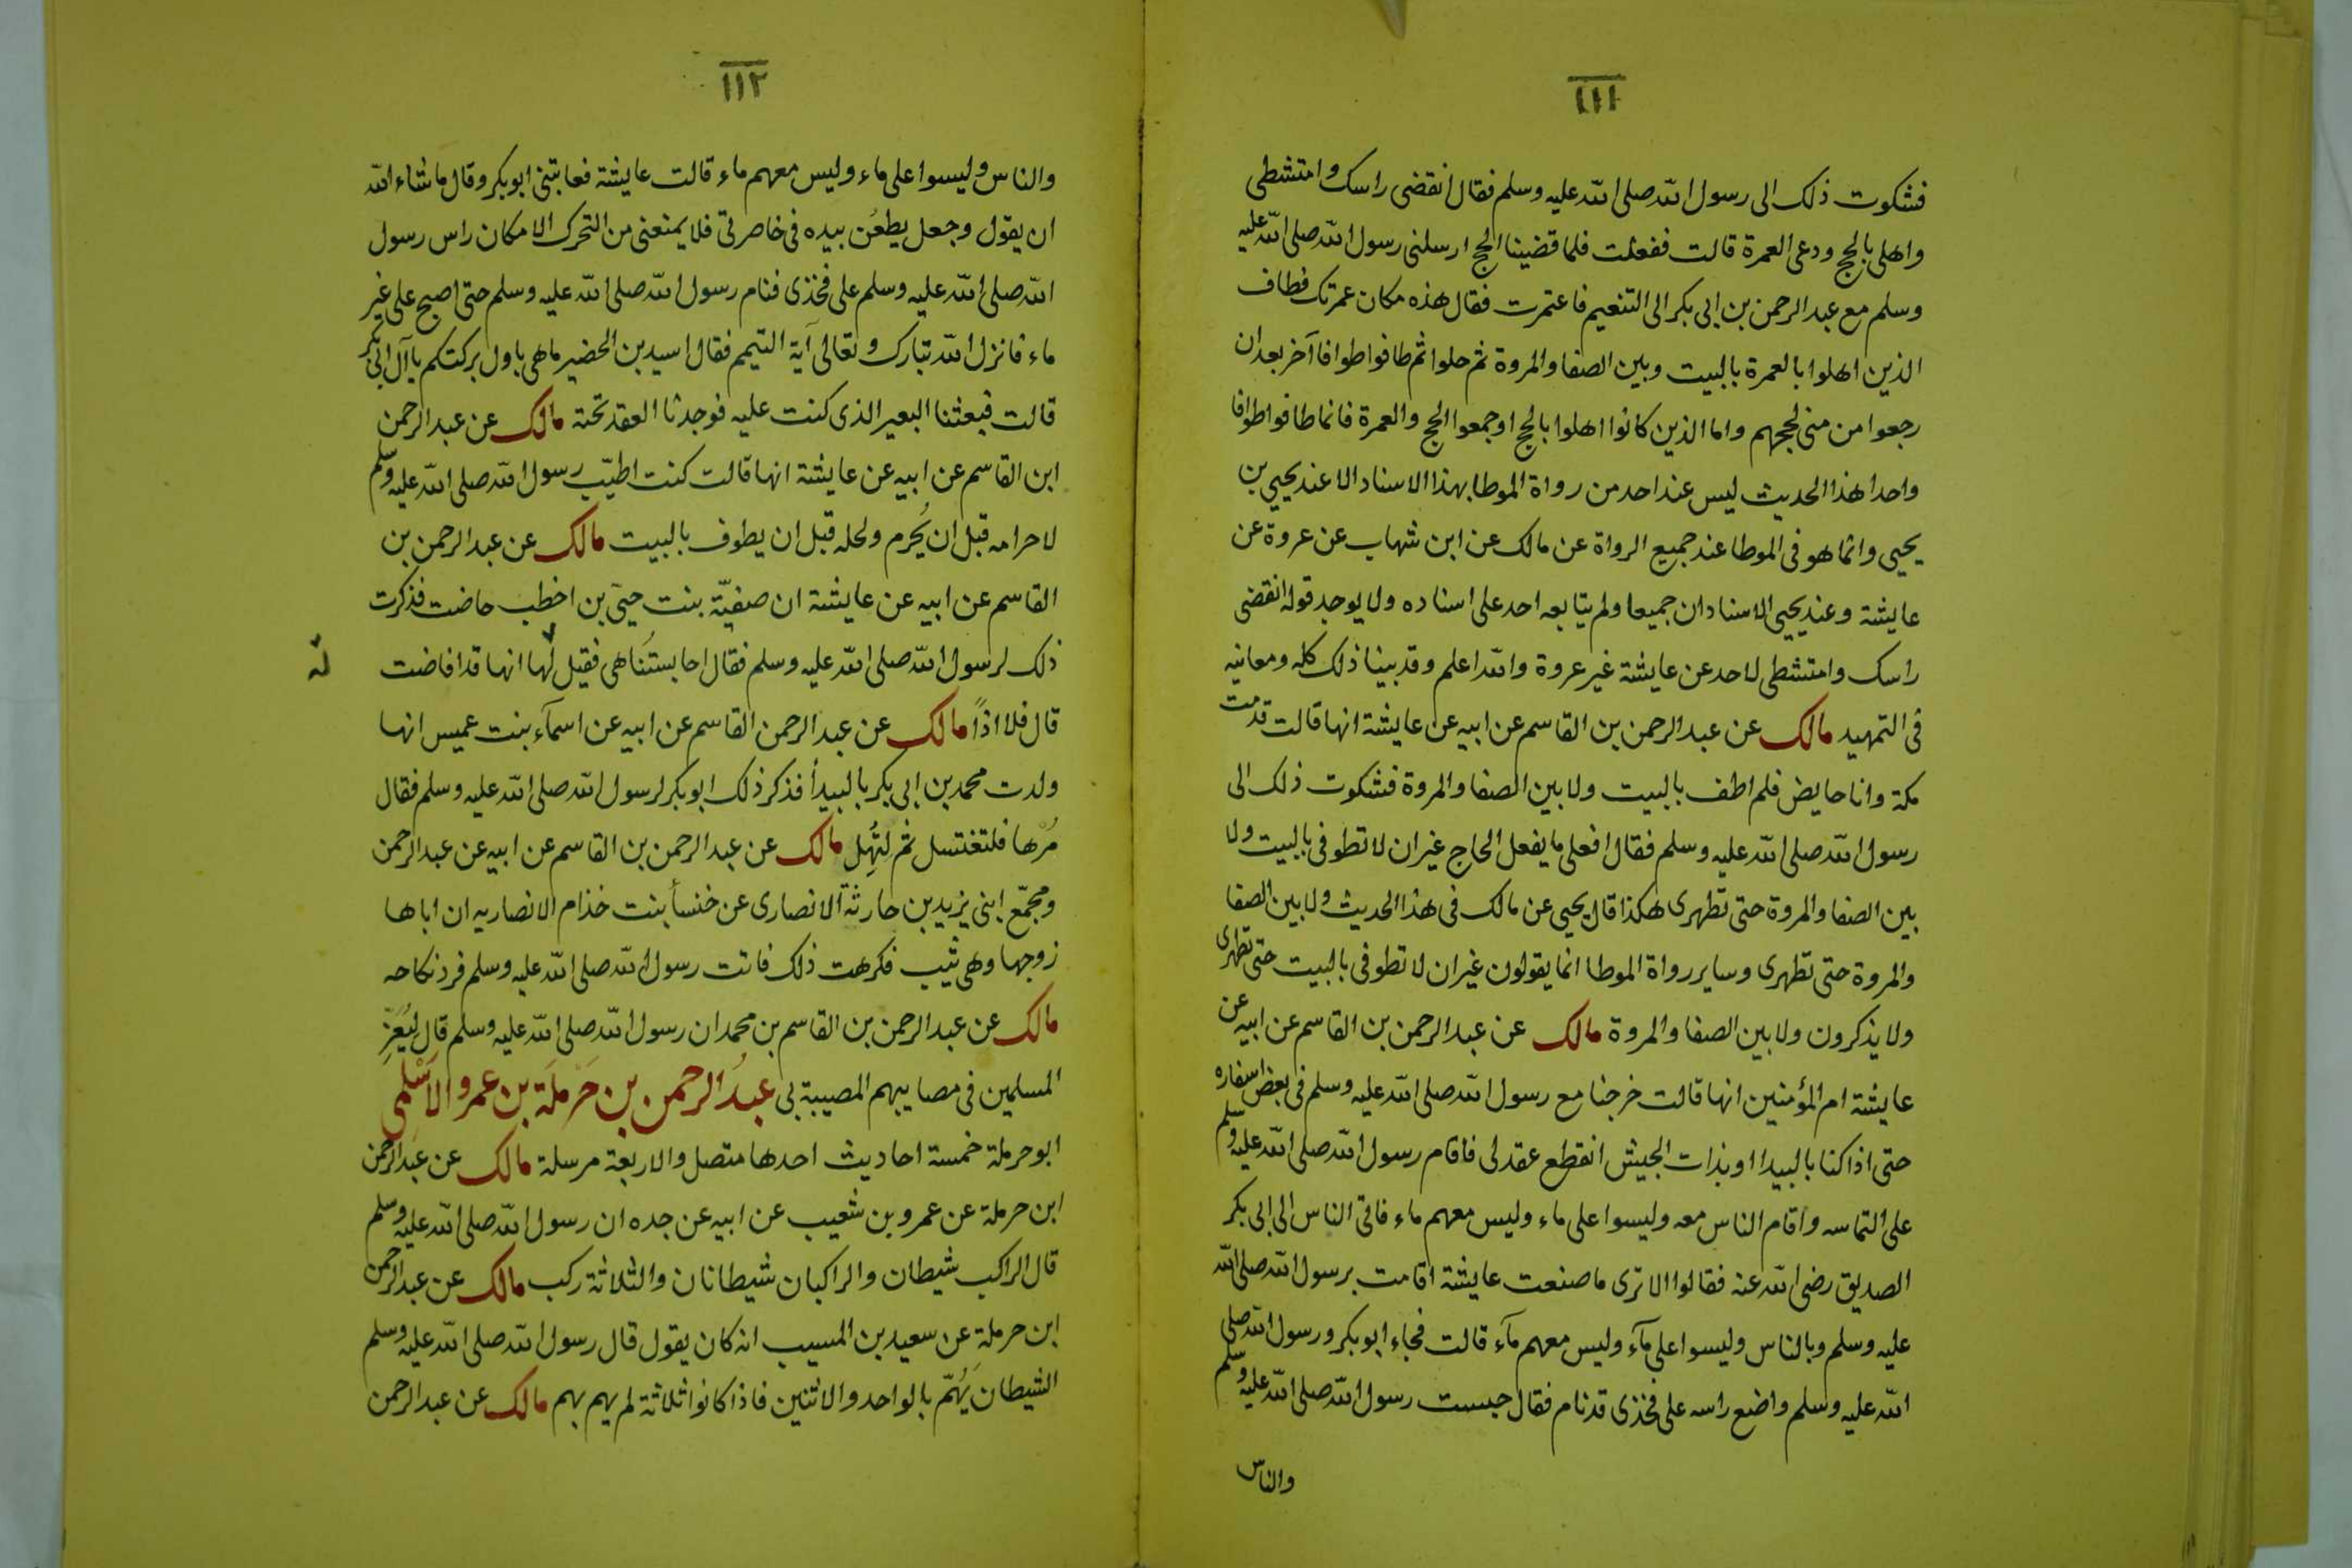 ١١١
فشكوت ذلك الى رسول الله صلى الله عليه وسلم فقال انقضى راسك وامتشطى
واهلى بالحج ودعى العمرة قالت ففعلت فلما قضينا الحج ارسلنى رسول الله صلى الله عليه
وسلم مع عبد الرحمن بن ابى بكر الى التنعيم فاعتمرت فقال هذه مكان عمرتك فطاف
الذين اهلوا بالعمرة بالبيت وبين الصفا والمروة ثم حلوا ثم طافوا طوافا آخر بعد ان
رجعوا من منى لحجهم واما الذين كانوا اهلوا بالحج او جمعوا الحج والعمرة فانما طافوا طوافا
واحدا هذا الحديث ليس عند احد من رواة الموطا بهذا الاسناد الا عند يحيي بن
يحيى وانما هو فى الموطا عند جميع الرواة عن مالك عن ابن شهاب عن عروة عن
عايشة وعند يحيى الاسنادان جميعا ولم يتابعه احد على اسناده ولا يوجد قوله انقضى
راسك وامتشطى لاحد عن عايشة غير عروة والله اعلم وقد بينا ذلك كله ومعانيه
فى التمهيد مالك عن عبد الرحمن بن القاسم عن ابيه عن عايشة انها قالت قدمت
مكة وانا حايض فلم اطف بالبيت ولا بين الصفا والمروة فشكوت ذلك الى
رسول الله صلى الله عليه وسلم فقال افعلى ما يفعل الحاج غير ان لا تطوفى بالبيت ولا
بين الصفا والمروة حتى تطهرى هكذا قال يحيى عن مالك فى هذا الحديث ولا بين الصفا
والمروة حتى تطهرى وساير رواة الموطا انما يقولون غير ان لا تطوفى بالبيت حتى تطهرى
ولا يذكرون ولا بين الصفا والمروة مالك عن عبد الرحمن بن القاسم عن ابيه عن
عايشة ام المؤمنين انها قالت خرجنا مع رسول الله صلى الله عليه وسلم فى بعض اسفاره
حتى اذا كنا بالبيدا او بذات الجيش انقطع عقد لى فاقام رسول الله صلى الله عليه وسلم
على التماسه واقام الناس معه وليسوا على ماء وليس معهم ماء فاتى الناس الى ابى بكر
الصديق رضى الله عنه فقالوا الا ترى ما صنعت عايشة اقامت برسول الله صلى الله
عليه وسلم وبالناس وليسوا على مآء وليس معهم مآء قالت فجاء ابو بكر ورسول الله صلى
الله عليه وسلم واضع راسه على فخذى قد نام فقال حبست رسول الله صلى الله عليه وسلم
والناس
١١٢
والناس وليسوا على ماء وليس معهم ماء قالت عايشة فعاتبنى ابو بكر وقال ما شاء الله
ان يقول وجعل يطعُن بيده فى خاصرتى فلا يمنعنى من التحرك الا مكان راس رسول
الله صلى الله عليه وسلم على فخذى فنام رسول الله صلى الله عليه وسلم حتى اصبح على غير
ماء فانزل الله تبارك وتعالى آية التيمم فقال اسيد بن الحضير ما هى باول بركتكم يا آل ابى بكر
قالت فبعثنا البعير الذى كنت عليه فوجدنا العقد تحته مالك عن عبد الرحمن
ابن القاسم عن ابيه عن عايشة انها قالت كنت اطيّب رسول الله صلى الله عليه وسلم
لاحرامه قبل ان يُحرم ولحله قبل ان يطوف بالبيت مالك عن عبد الرحمن بن
القاسم عن ابيه عن عايشة ان صفيّة بنت حيى بن اخطب حاضت فذكرت
ذلك لرسول الله صلى الله عليه وسلم فقال احابستُنا هى فقيل لها انها قد افاضت
له
قال فلا اذًا مالك عن عبد الرحمن القاسم عن ابيه عن اسمآء بنت عميس انها
ولدت محمد بن ابى بكر بالبيدأ فذكر ذلك ابو بكر لرسول الله صلى الله عليه وسلم فقال
مُرْها فلتغتسل ثم لِتُهِل مالك عن عبد الرحمن بن القاسم عن ابيه عن عبد الرحمن
ومجمّع ابنى يزيد بن حارثة الانصارى عن خنسأ بنت خذام الانصاريه ان اباها
زوجها وهى ثيب فكرهت ذلك فاتت رسول الله صلى الله عليه وسلم فرد نكاحه
مالك عن عبد الرحمن بن القاسم بن محمد ان رسول الله صلى الله عليه وسلم قال ليُعَزِّ
المسلمين فى مصايبهم المصيبة بى عبدُ الرحمن بن حَرْملَة بن عمرو الاَسْلمى
ابو حرملة خمسة احاديث احدها متصل والاربعة مرسلة مالك عن عبد الرحمن
ابن حرملة عن عمرو بن شعيب عن ابيه عن جده ان رسول الله صلى الله عليه وسلم
قال الراكب شيطان والراكبان شيطانان والثلاثة ركب مالك عن عبد الرحمن
ابن حرملة عن سعيد بن المسيب انه كان يقول قال رسول الله صلى الله عليه وسلم
الشيطان يَهُمّ بالواحد والاثنين فاذا كانوا ثلاثة لم يهم بهم مالك عن عبد الرحمن